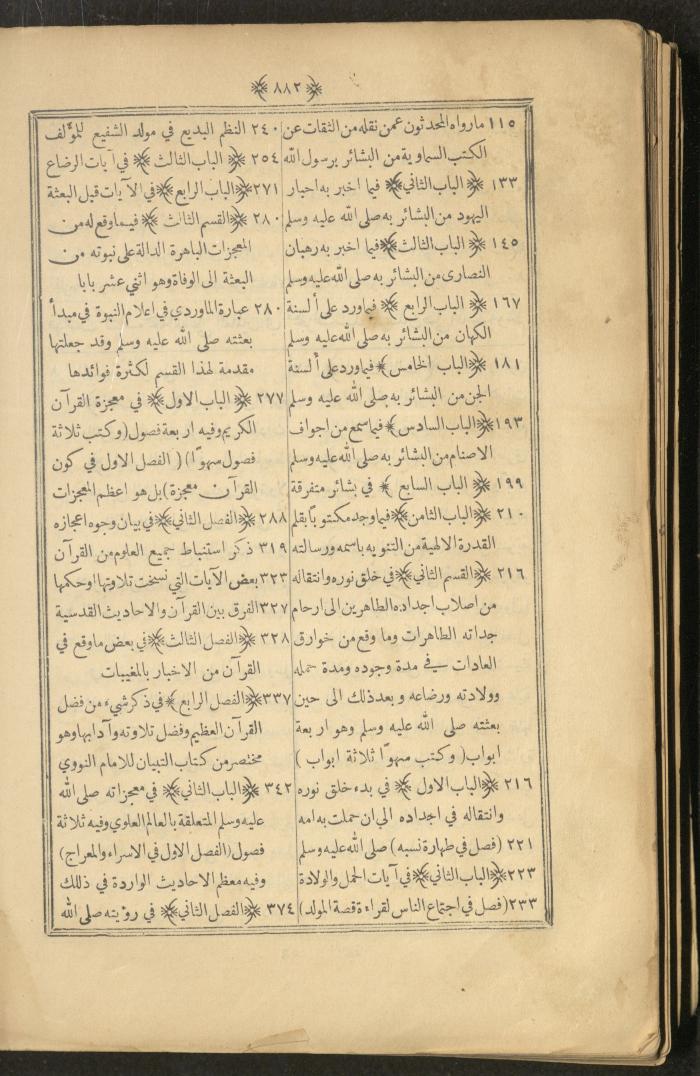 ٨٨٢
١١٥ مارواه المحدثون عمن نقله من الثقات عن
الكتب السماوية من البشائر برسول الله
١٣٣ ﴿الباب الثاني﴾ فيما اخبر به احبار
اليهود من البشائر به صلى الله عليه وسلم
١٤٥ ﴿الباب الثالث﴾ فيما اخبر به رهبان
النصارى من البشائر به صلى الله عليه وسلم
١٦٧ ﴿الباب الرابع﴾ فيما ورد على ألسنة
الكهان من البشائر به صلى الله عليه وسلم
١٨١ ﴿الباب الخامس﴾ فيما ورد على ألسنة
الجن من البشائر به صلى الله عليه وسلم
١٩٣ ﴿الباب السادس﴾ فيما سمع من اجواف
الاصنام من البشائر به صلى الله عليه وسلم
١٩٩ ﴿الباب السابع﴾ في بشائر متفرقة
٢١٠ ﴿الباب الثامن﴾ فيما وجد مكتوبا بقلم
القدرة الالهية من التنويه باسمه ورسالته
٢١٦ ﴿القسم الثاني﴾ في خلق نوره وانتقاله
من اصلاب اجداده الطاهرين الى ارحام
جداته الطاهرات وما وقع من خوارق
العادات في مدة وجوده ومدة حمله
وولادته ورضاعه وبعد ذلك الى حين
بعثته صلى الله عليه وسلم وهو اربعة
ابواب (وكتب سهوًا ثلاثة ابواب)
٢١٦ ﴿الباب الاول﴾ في بدء خلق نوره
وانتقاله في اجداده الى ان حملت به امه
٢٢١ (فصل في طهارة نسبه) صلى الله عليه وسلم
٢٢٣ ﴿الباب الثاني﴾ في آيات الحمل والولادة
٢٣٣ (فصل في اجتماع الناس لقراءة قصة المولد)
٢٤٠ النظم البديع في مولد الشفيع للمؤلف
٢٥٤ ﴿الباب الثالث﴾ في آيات الرضاع
٢٧١ ﴿الباب الرابع﴾ في الآيات قبل البعثة
٢٨٠ ﴿القسم الثالث﴾ فيما وقع له من
المعجزات الباهرة الدالة على نبوته من
البعثة الى الوفاة وهو اثني عشر بابا
٢٨٠ عبارة الماوردي في اعلام النبوة في مبدأ
بعثته صلى الله عليه وسلم وقد جعلتها
مقدمة لهذا القسم لكثرة فوائدها
٢٧٧ ﴿الباب الاول﴾ في معجزة القرآن
الكريم وفيه اربعة فصول (وكتب ثلاثة
فصول سهوًا) (الفصل الاول في كون
القرآن معجزة) بل هو اعظم المعجزات
٢٨٨ ﴿الفصل الثاني﴾ في بيان وجوه اعجازه
٣١٩ ذكر استنباط جميع العلوم من القرآن
٣٢٣ بعض الآيات التي نسخت تلاوتها وحكمها
٣٢٧ الفرق بين القرآن والاحاديث القدسية
٣٢٨ ﴿الفصل الثالث﴾ في بعض ما وقع في
القرآن من الاخبار بالمغيبات
٣٣٧ ﴿الفصل الرابع﴾ في ذكر شيء من فضل
القرآن العظيم وفضل تلاوته وآدابها وهو
مختصر من كتاب التبيان للامام النووي
٣٤٢ ﴿الباب الثاني﴾ في معجزاته صلى الله
عليه وسلم المتعلقة بالعالم العلوي وفيه ثلاثة
فصول (الفصل الاول في الاسراء والمعراج)
وفيه معظم الاحاديث الواردة في ذلك
٣٧٤ ﴿الفصل الثاني﴾ في رؤيته صلى الله